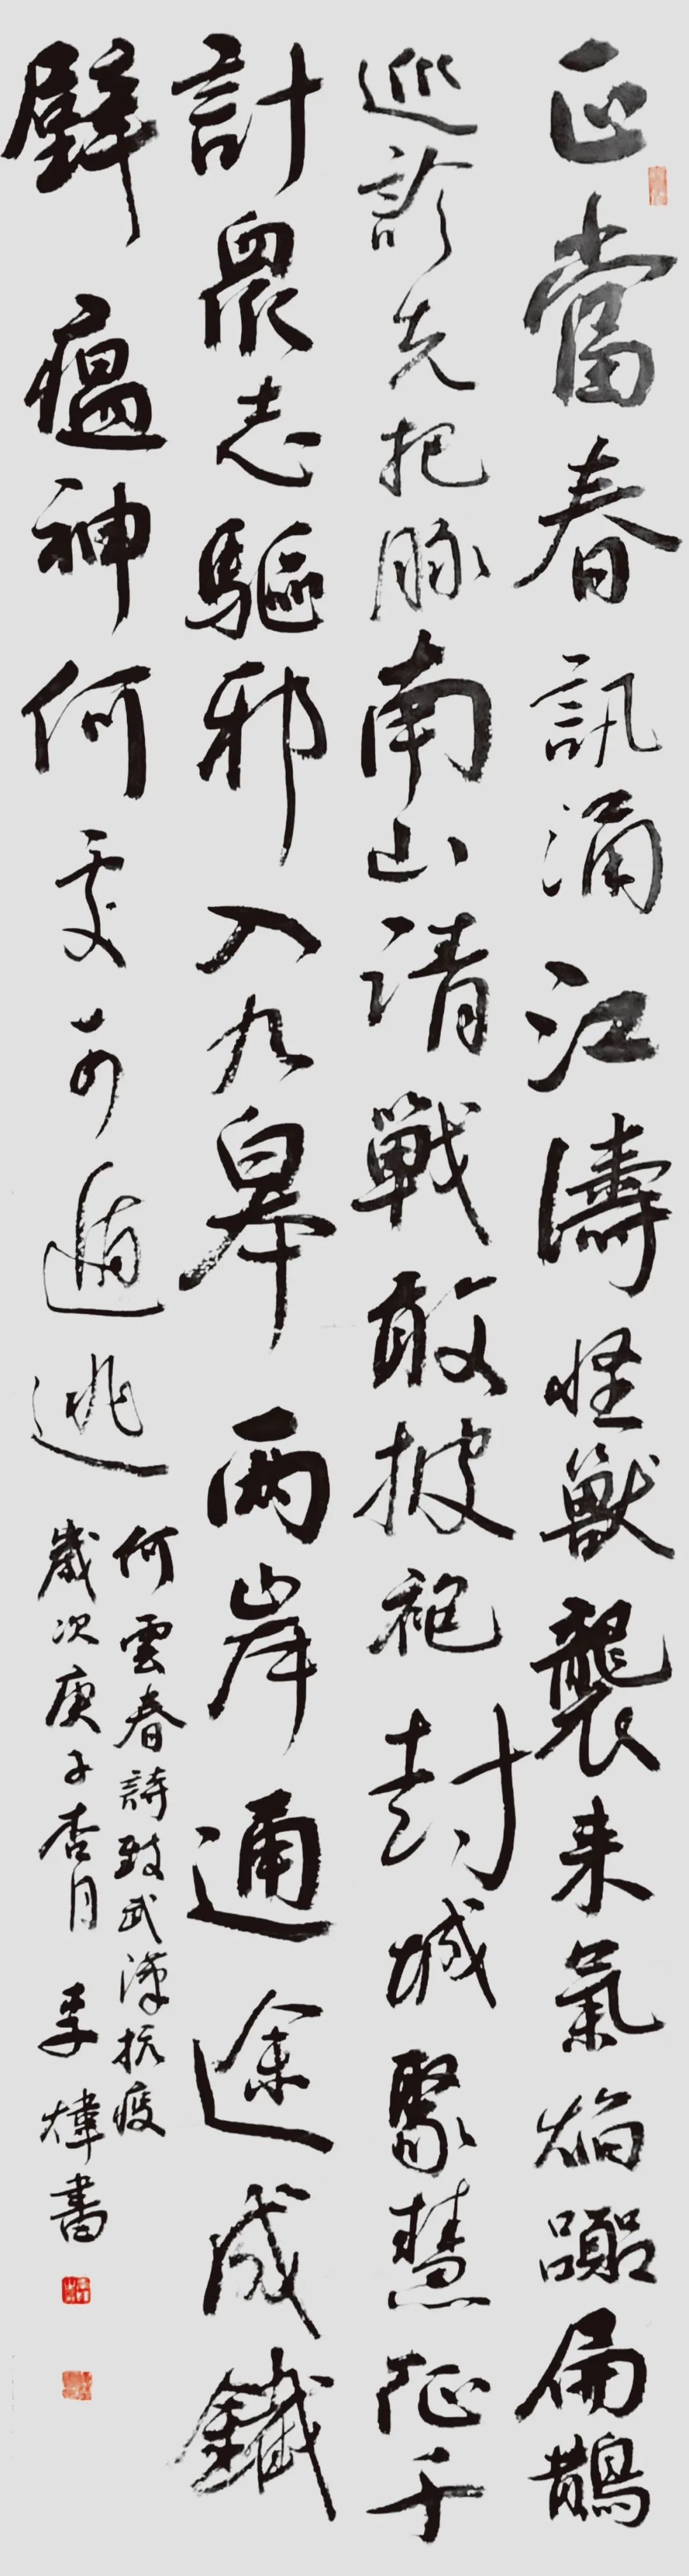 正當春訊涌江濤怪獸襲来氣焰囂扁鵲
巡診先把脉南山请戰敢披袍封城聚慧征千
計眾志驅邪入九皋兩岸通途成鐵
壁瘟神何處可遁逃
何雲春詩致武漢抗疫
歲次庚子杏月李煒書